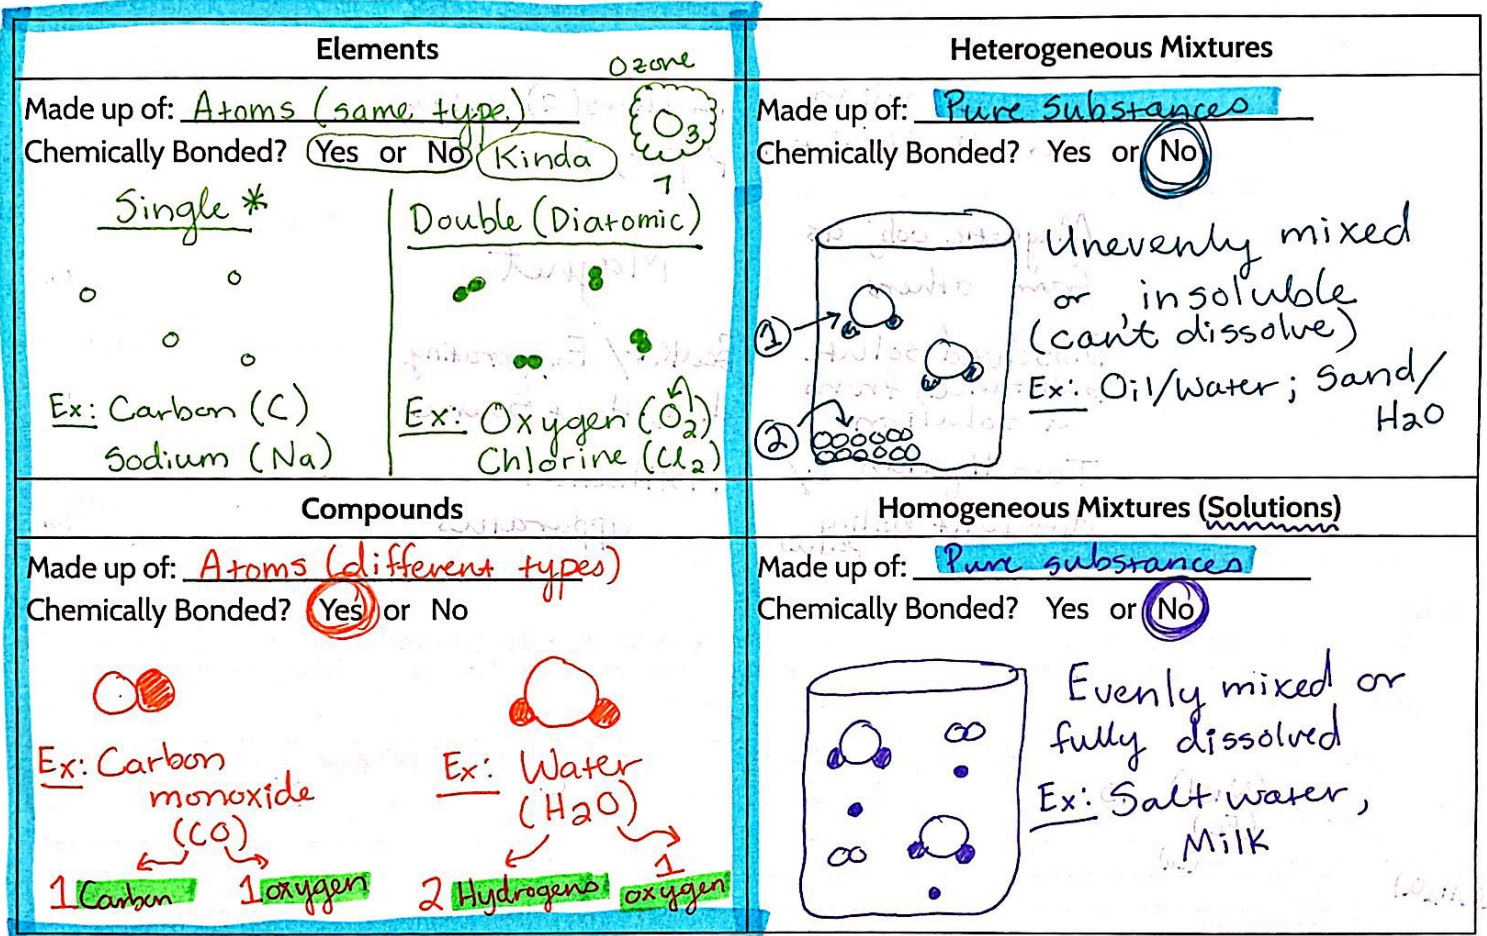 Elements
Ozone
O3
Made up of: Atoms (same type)
Chemically Bonded? Yes or No Kinda
Single *
Ex: Carbon (C)
Sodium (Na)
Double (Diatomic)
Ex: Oxygen (O2)
Chlorine (Cl2)
Heterogeneous Mixtures
Made up of: Pure Substances
Chemically Bonded? Yes or No
1
2
Unevenly mixed
or insoluble
(can't dissolve)
Ex: Oil/Water; Sand/
H2O
Compounds
Made up of: Atoms (different types)
Chemically Bonded? Yes or No
Ex: Carbon
monoxide
(CO)
1 Carbon 1 oxygen
Ex: Water
(H2O)
2 Hydrogens 1 oxygen
Homogeneous Mixtures (Solutions)
Made up of: Pure substances
Chemically Bonded? Yes or No
Evenly mixed or
fully dissolved
Ex: Salt water,
Milk